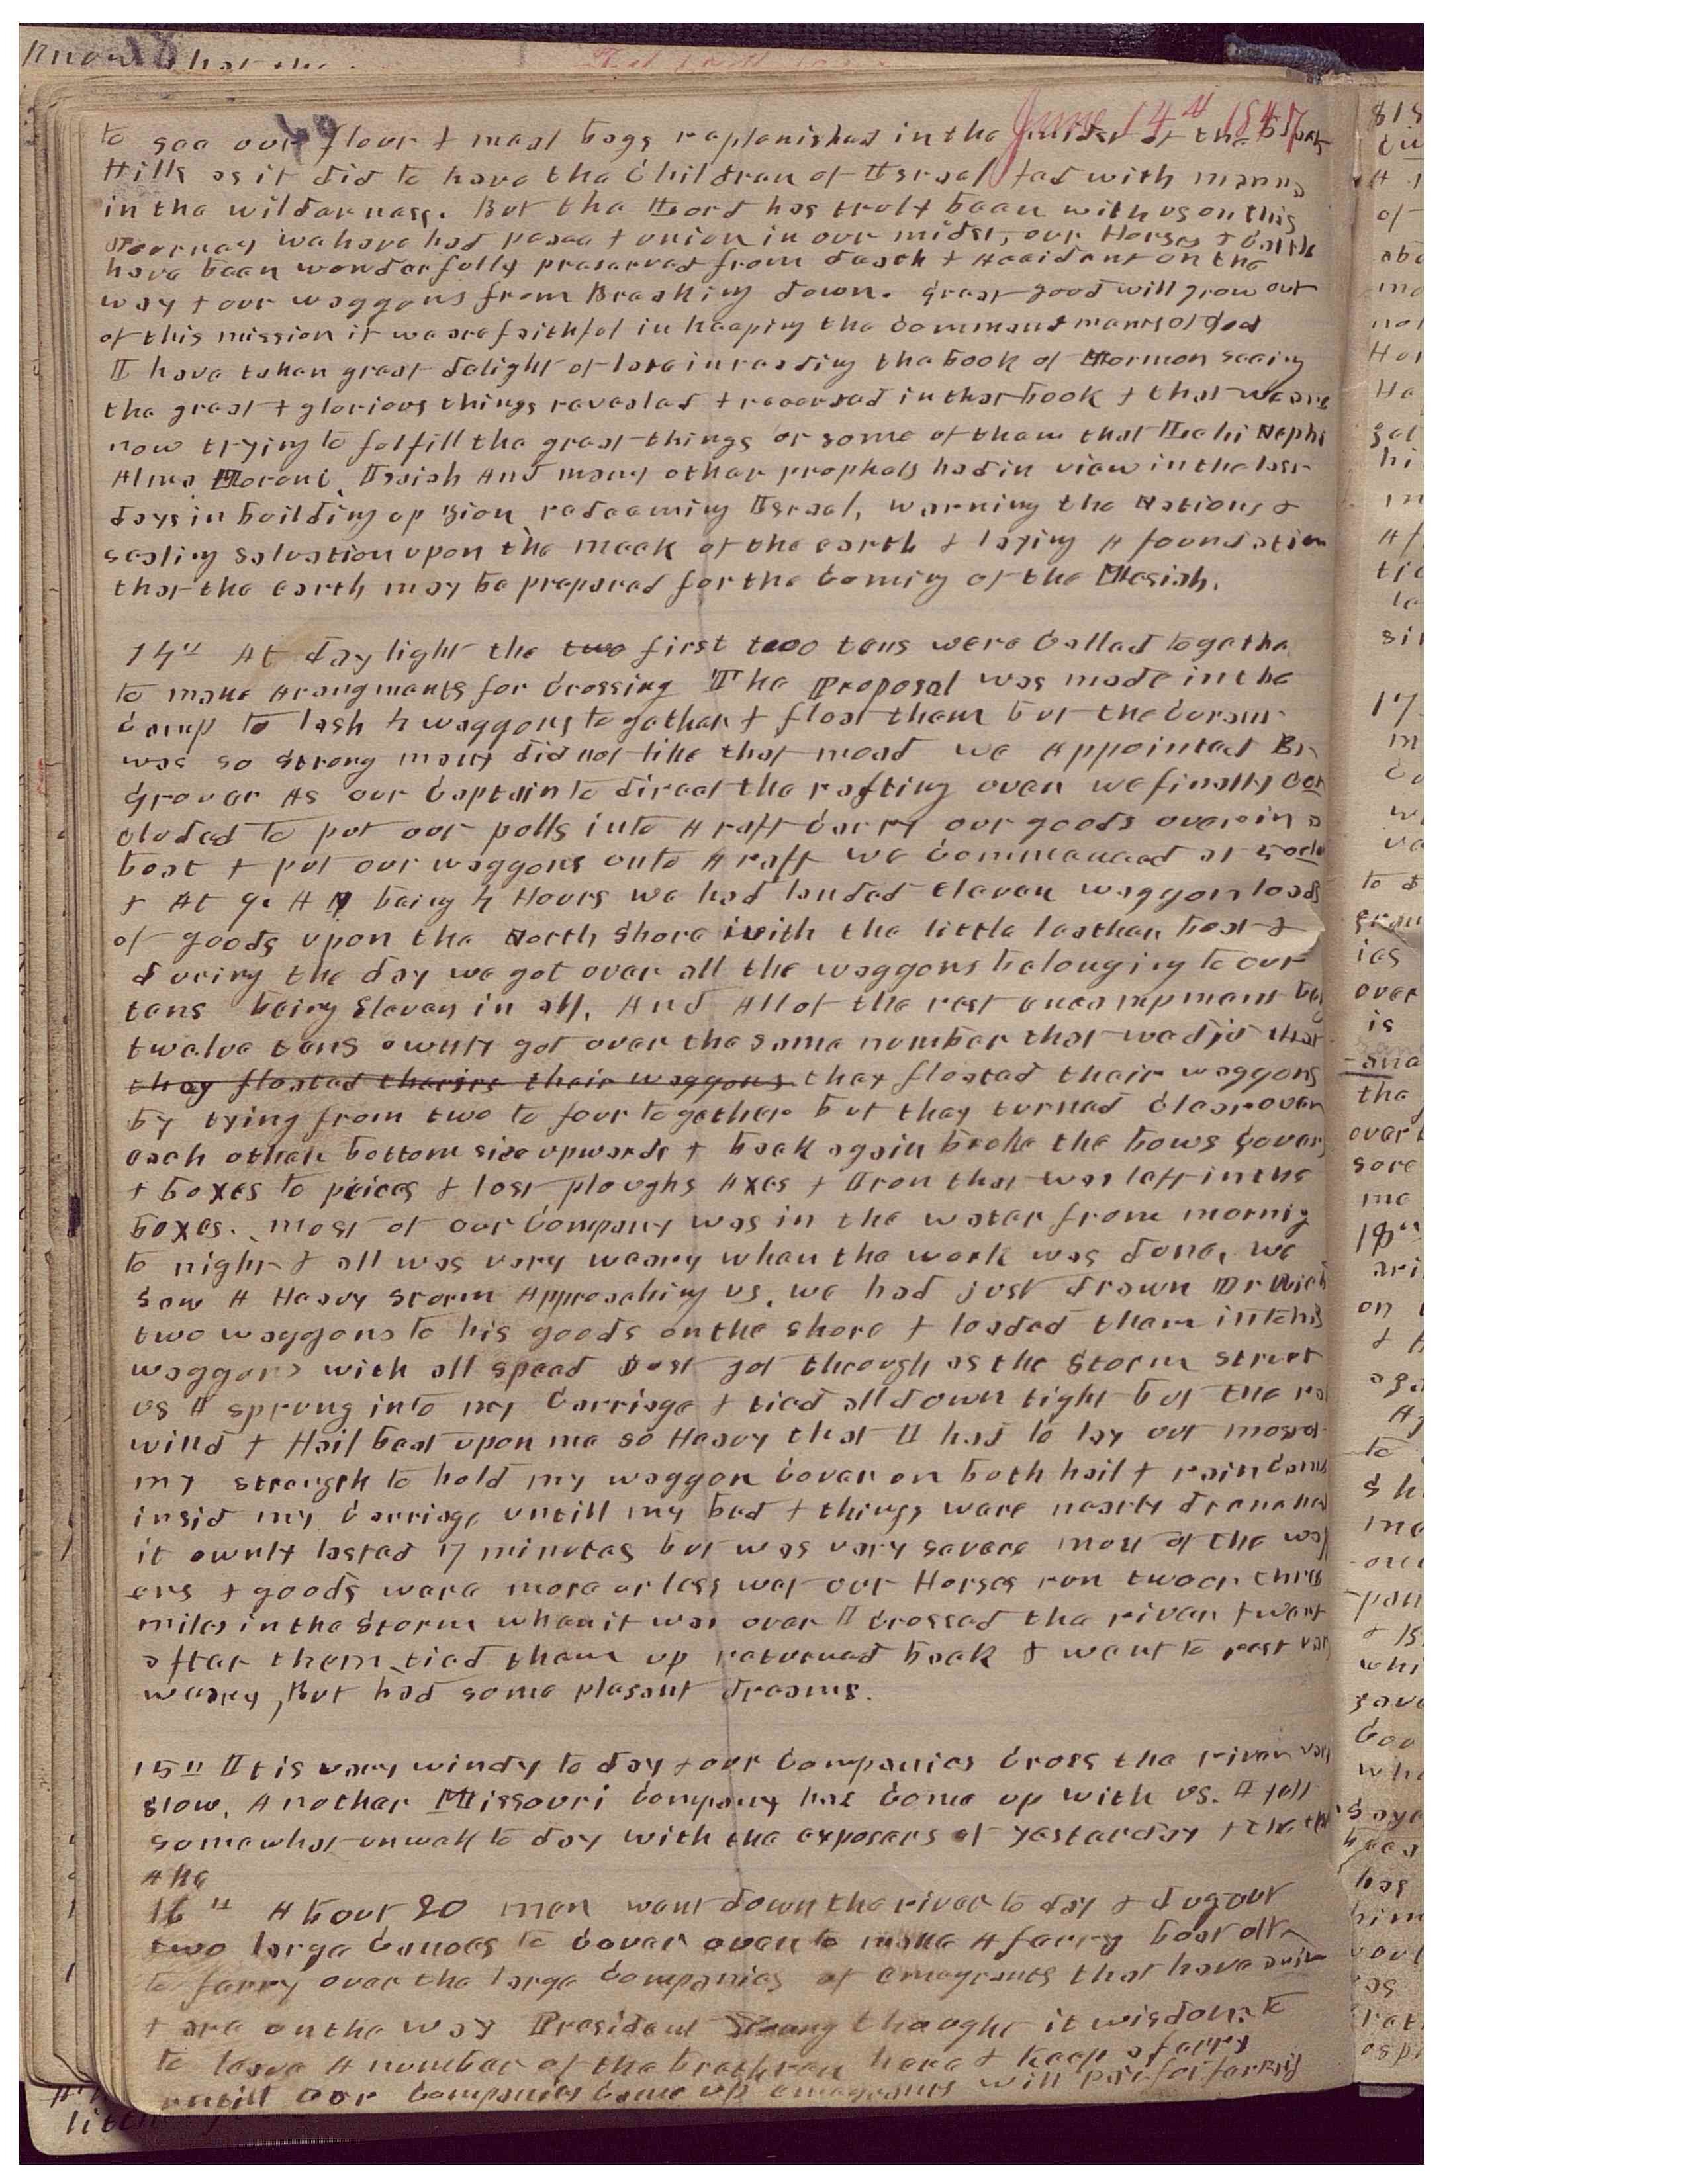 June 14th 1847
to see our flour & meal bags replenished in the midst of the Black
Hills as it did to have the Children of Israel fed with manna
in the wilderness. But the Lord has truly been with us on this
Journey we have had peace & union in our midst, our Horses & Cattle
have been wonderfully preserved from death & accident on the
way & our waggons from Breaking down. great good will grow out
of this mission if we are faithful in keeping the Commandments of God
I have taken great delight of late in reading the book of Mormon seeing
the great & glorious things revealed & recorded in that book & that we are
now trying to fulfill the great things or some of them that Lehi Nephi
Alma Moroni Isaiah And many other prophets had in view in the last
days in building up Zion redeeming Israel, warning the Nations &
sealing salvation upon the meek of the earth & laying A foundation
that the earth may be prepared for the Coming of the Mesiah.
14th At day light the two first two tens were Called togethe
to make Arangments for Crossing The Proposal was made in the
Camp to lash 4 waggons together & float them but the Curant
was so strong many did not like that mode we Appointed Br
Grover As our Captain to direct the rafting over we finally Con
cluded to put our polls into A raft Carry our goods over in a
boat & put our waggons onto A raft we Commenced at 5 oclo
& At 9. A M being 4 Hours we had landed Eleven waggon loads
of goods upon the North Shore with the little leather boat &
during the day we got over all the waggons belonging to our
tens being Eleven in all, And All of the rest encampment
twelve tens ownly got over the same number that we did
they floated their waggons they floated their waggons
by tying from two to four together but they turned Clear over
each other bottom side upwards & back again broke the bows Covers
& boxes to peices & lost ploughs Axes & Iron that was left in the
boxes. most of our Company was in the water from mornig
to night & all was very weary when the work was done, we
saw A Heavy storm Approaching us. we had just drawn Dr Rich
two waggons to his goods on the shore & loaded them into his
waggons with all speed Just got through as the storm struct
us I sprung into my Carriage & tied all down tight but the
wind & Hail beat upon me so Heavy that I had to lay out most of
my strength to hold my waggon Cover on both hail & rain came
insid my Carriage untill my bed & things were nearly drenched
it ownly lasted 17 minutes but was very severe most of the wag
ons & goods were more or less wet our Horses run two or three
miles in the storm when it was over I Crossed the river & went
after them tied them up returned back & went to rest very
weary, But had some plesant dreams.
15th It is very windy to day & our Companies Cross the river very
slow. Another Missouri Company has Come up with us. I felt
somewhat unwell to day with the exposers of yesterday
Ake
16th About 20 men went down the river to day & dug out
two large Canoes to Cover over to make A ferry boat
to ferry over the large Companies of emegrants that have
& are on the way President Young thought it wisdom to
to leave A number of the brethren here & keep a ferry
untill our Companies Come up emegrants will pay for ferrig